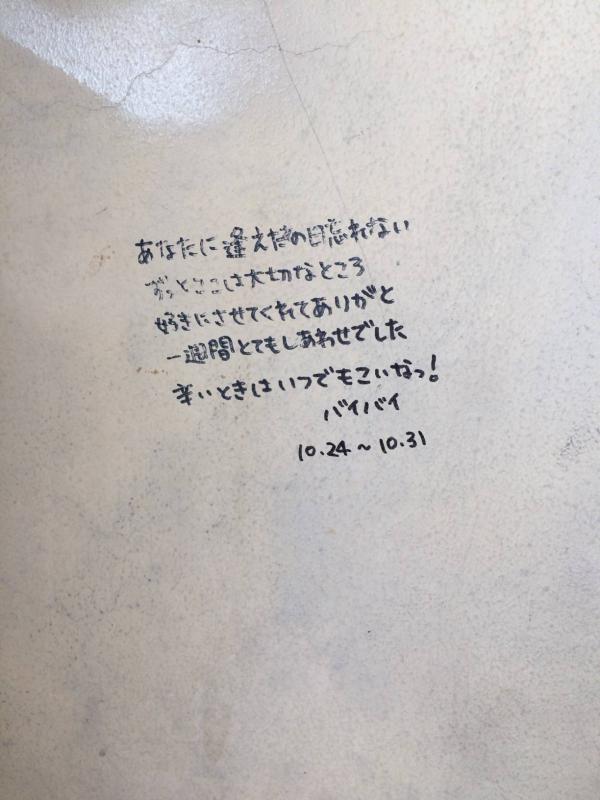 あなたに逢えたの日忘れない
ずっとここは大切なところ
好きにさせてくれてありがと
一週間とてもしあわせでした
辛いときはいつでもこいなっ!
バイバイ
10.24～10.31